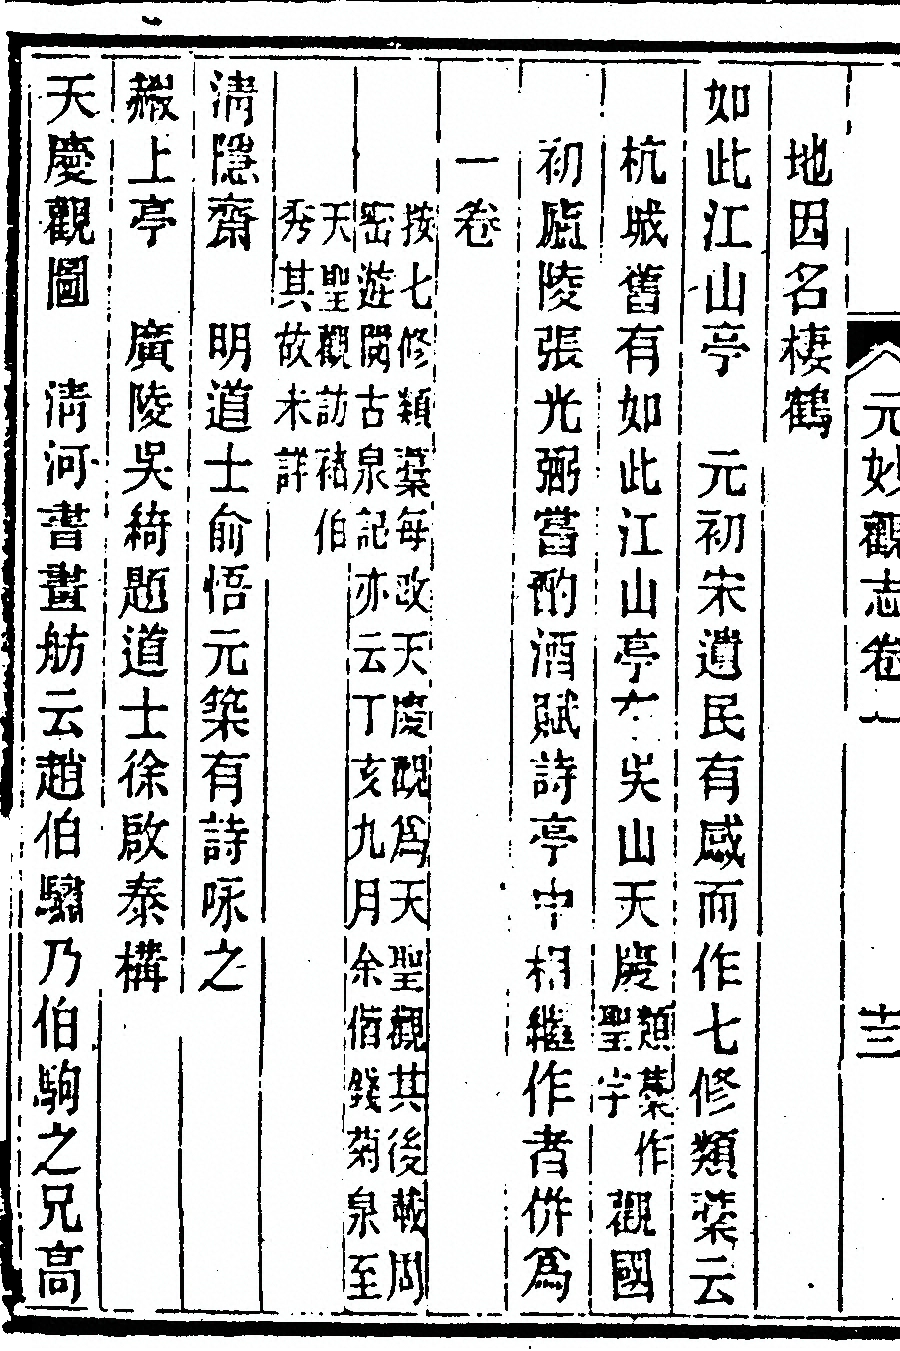 元妙觀志卷一
十三
地因名棲鶴
如此江山亭　元初宋遺民有感而作七修類藁云
杭城舊有如此江山亭在吳山天慶類藁作聖字觀國
初廬陵張光弼嘗酌酒賦詩亭中相繼作者併爲
一卷
按七修類藁每改天慶觀爲天聖觀其後載周
密遊閱古泉記亦云丁亥九月余偕錢菊泉至
天聖觀訪褚伯
秀其故未詳
清隱齋　明道士俞悟元築有詩咏之
赮上亭　廣陵吳綺題道士徐啟泰構
天慶觀圖　清河書畫舫云趙伯驌乃伯駒之兄高